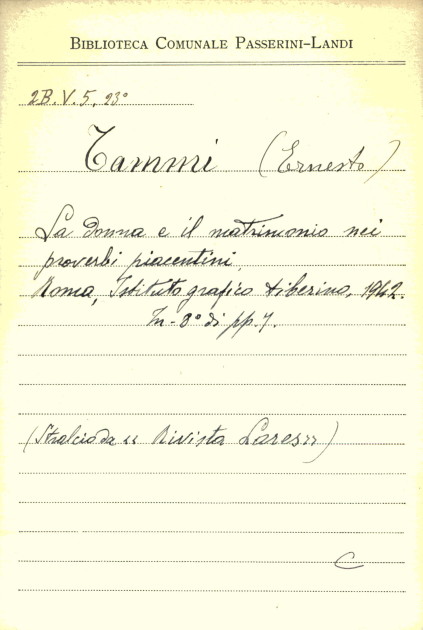 BIBLIOTECA COMUNALE PASSERINI-LANDI
2B.V.5. 23°
Tammi (Ernesto)
La donna e il matrimonio nei
proverbi piacentini.
Roma, Istituto grafico tiberino, 1942.
In-8° di pp. 7.
(Stralcio da "Rivista Lares")
C